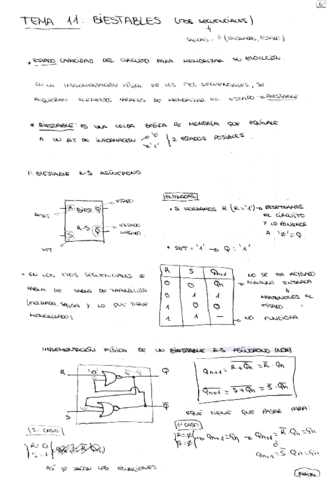 TEMA 11: BIESTABLES (CTOS SECUENCIALES)
SALIDAS = F(ENTRADAS, ESTADO)
• ESTADO: CAPACIDAD DEL CIRCUITO PARA MEMORIZAR SU EVOLUCIÓN.
EN LA IMPLEMENTACIÓN FÍSICA DE LOS CTOS SECUENCIALES, SE
REQUIEREN ELEMENTOS CAPACES DE MEMORIZAR EL ESTADO → BIESTABLE
• BIESTABLE: ES UNA CELDA BÁSICA DE MEMORIA QUE EQUIVALE
A UN BIT DE INFORMACIÓN '0' '1' } 2 ESTADOS POSIBLES.
1. BIESTABLE R-S ASÍNCRONO
ENTRADAS
RESET R BIEST. Q ESTADO
R-S
SET S Q ESTADO NEGADO
• SI PONEMOS R (R='1') → RESETEAMOS
EL CIRCUITO
Y LO PONEMOS
A '0' = Q
• SET = '1' → Q = '1'
• EN LOS CTOS SECUENCIALES SE
HABLA DE TABLA DE TRANSICIÓN
(ENTRADA, SALIDA Y LO QUE TIENE
MEMORIZADO)
R S Qn+1
0 0 Qn
0 1 1
1 0 0
1 1 —
NO SE HA ACTIVADO
NINGUNA ENTRADA
MANTENEMOS EL
ESTADO
NO FUNCIONA
IMPLEMENTACIÓN FÍSICA DE UN BIESTABLE R-S ASÍNCRONO (NOR)
R '0' Q
S Q
¿QUÉ TIENE QUE PASAR PARA:
2º CASO
R=0
S=1
1º CASO
R=0
S=0
ASÍ SE SACAN LAS ECUACIONES